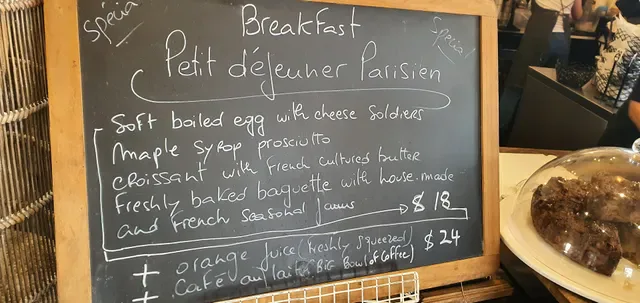 Spécial
Breakfast
Spécial
Petit déjeuner Parisien
Soft boiled egg with cheese Soldiers
maple Syrop prosciutto
croissant with French cultured butter
Freshly baked baguette with house-made
and French Seasonal Jams → $ 18
+ orange juice (freshly squeezed)
+ Café au lait (BIG Bowl of coffee) $ 24